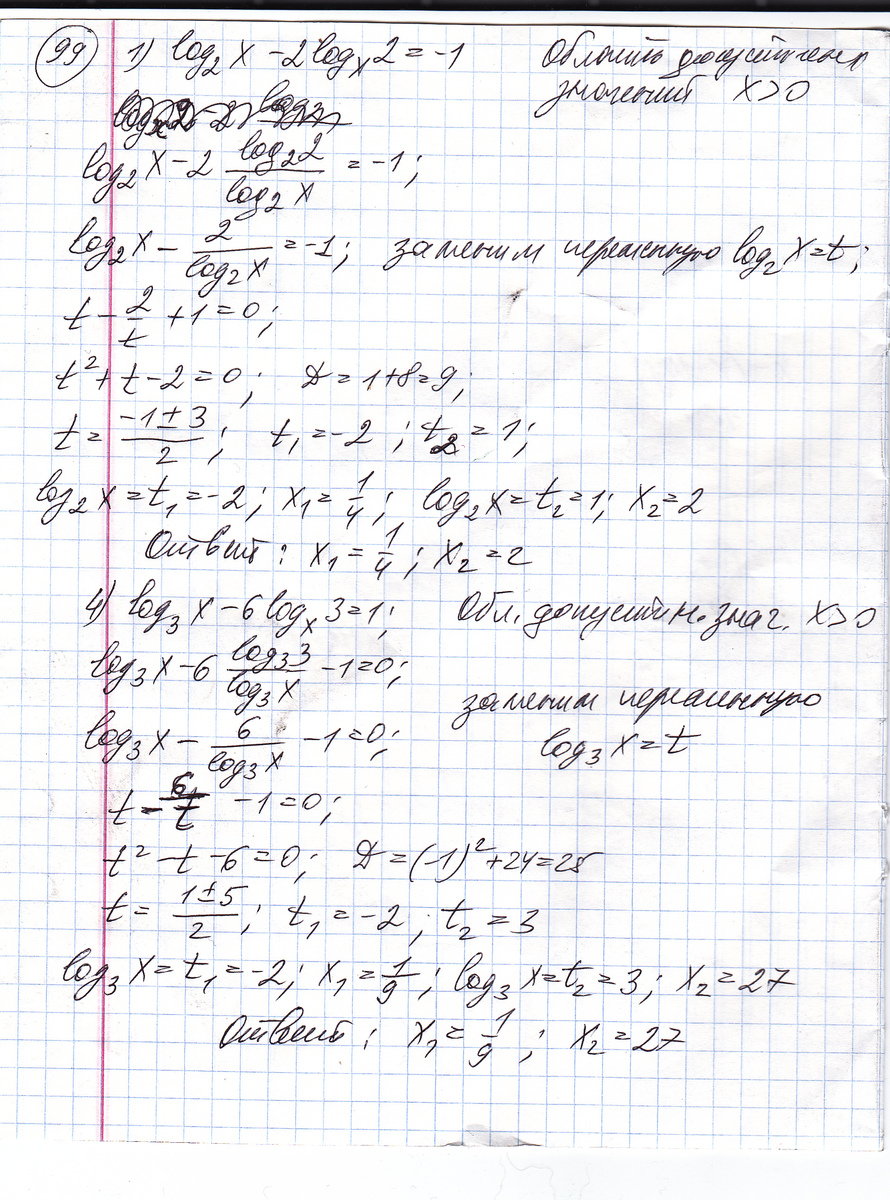 99 1) log₂x − 2logₓ2 = −1 Область допустимых
значений x>0
log₂x − 2 log₂2/log₂x = −1;
log₂x − 2/log₂x = −1; заменим переменную log₂x = t;
t − 2/t + 1 = 0;
t² + t − 2 = 0; D = 1+8 = 9;
t = (−1 ± 3)/2; t₁ = −2; t₂ = 1;
log₂x = t₁ = −2; x₁ = 1/4; log₂x = t₂ = 1; x₂ = 2
Ответ: x₁ = 1/4; x₂ = 2
4) log₃x − 6logₓ3 = 1; Обл. допустим. знач. x>0
log₃x − 6 log₃3/log₃x − 1 = 0;
заменим переменную
log₃x − 6/log₃x − 1 = 0; log₃x = t
t − 6/t − 1 = 0;
t² − t − 6 = 0; D = (−1)² + 24 = 25
t = (1 ± 5)/2; t₁ = −2; t₂ = 3
log₃x = t₁ = −2; x₁ = 1/9; log₃x = t₂ = 3; x₂ = 27
Ответ: x₁ = 1/9; x₂ = 27